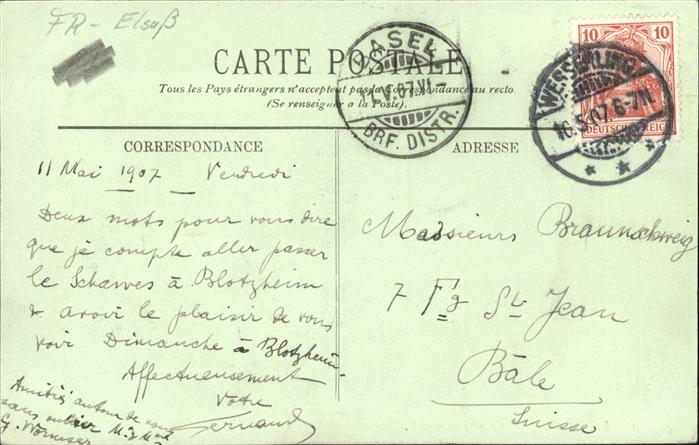 FR - Elsaß
CARTE POSTALE
Tous les Pays étrangers n'acceptent pas la Correspondance au recto.
(Se renseigner à la Poste).
BASEL
11.V.07.VI-
BRF. DISTR.
10 10
DEUTSCHES REICH
WESSERLING
10.5.07. 6-7N.
CORRESPONDANCE
11 Mai 1907 Vendredi
Deux mots pour vous dire
que je compte aller passer
le à Blotzheim
& avoir le plaisir de vous
voir Dimanche à Blotzheim
Affectueusement
Votre
Fernand
Amitiés autour de vous
sans oublier
ADRESSE
Messieurs Braunschweig
7 Fg St. Jean
Bâle
Suisse